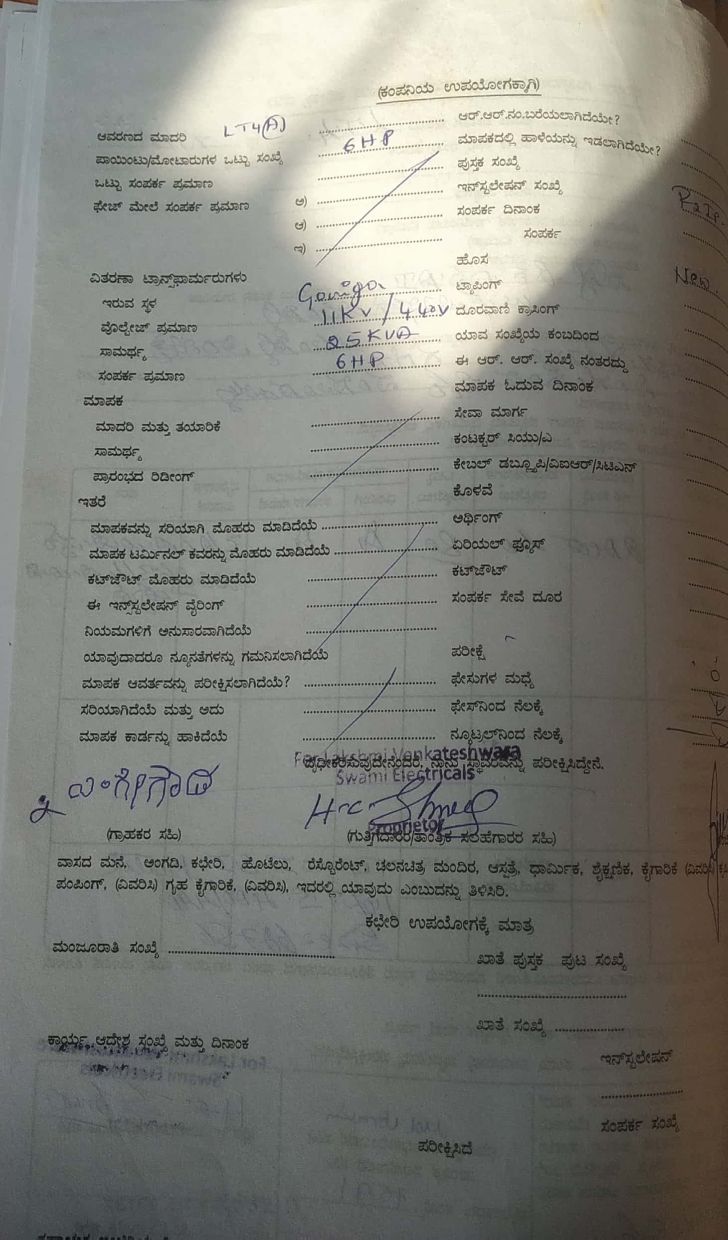 (ಕಂಪನಿಯ ಉಪಯೋಗಕ್ಕಾಗಿ)
ಆವರಣದ ಮಾದರಿ LT4(A) .......................... ಆರ್.ಆರ್.ನಂ.ಬರೆಯಲಾಗಿದೆಯೇ?
ಪಾಯಿಂಟು/ಮೋಟಾರುಗಳ ಒಟ್ಟು ಸಂಖ್ಯೆ 6HP ಮಾಪಕದಲ್ಲಿ ಹಾಳೆಯನ್ನು ಇಡಲಾಗಿದೆಯೇ?
ಒಟ್ಟು ಸಂಪರ್ಕ ಪ್ರಮಾಣ .......................... ಪುಸ್ತಕ ಸಂಖ್ಯೆ
ಫೇಜ್ ಮೇಲೆ ಸಂಪರ್ಕ ಪ್ರಮಾಣ ಅ) .......................... ಇನ್‌ಸ್ಟಲೇಷನ್ ಸಂಖ್ಯೆ
ಆ) .......................... ಸಂಪರ್ಕ ದಿನಾಂಕ
ಇ) .......................... ಸಂಪರ್ಕ
ಹೊಸ New
ವಿತರಣಾ ಟ್ರಾನ್ಸ್‌ಫಾರ್ಮರುಗಳು ಟ್ಯಾಪಿಂಗ್
ಇರುವ ಸ್ಥಳ ದೂರವಾಣಿ ಕ್ರಾಸಿಂಗ್
ವೊಲ್ಟೇಜ್ ಪ್ರಮಾಣ 11KV / 440V ಯಾವ ಸಂಖ್ಯೆಯ ಕಂಬದಿಂದ
ಸಾಮರ್ಥ್ಯ 25KVA ಈ ಆರ್. ಆರ್. ಸಂಖ್ಯೆ ನಂತರದ್ದು
ಸಂಪರ್ಕ ಪ್ರಮಾಣ 6HP ಮಾಪಕ ಓದುವ ದಿನಾಂಕ
ಮಾಪಕ
ಮಾದರಿ ಮತ್ತು ತಯಾರಿಕೆ .......................... ಸೇವಾ ಮಾರ್ಗ
ಸಾಮರ್ಥ್ಯ .......................... ಕಂಟಕ್ಟರ್ ಸಿಯು/ಎ
ಪ್ರಾರಂಭದ ರಿಡಿಂಗ್ .......................... ಕೇಬಲ್ ಡಬ್ಲ್ಯೂಪಿ/ವಿಐಆರ್/ಸಿಟಿಎನ್
ಇತರೆ ಕೊಳವೆ
ಮಾಪಕವನ್ನು ಸರಿಯಾಗಿ ಮೊಹರು ಮಾಡಿದೆಯೆ .......................... ಅರ್ಥಿಂಗ್
ಮಾಪಕ ಟರ್ಮಿನಲ್ ಕವರನ್ನು ಮೊಹರು ಮಾಡಿದೆಯೆ .......................... ಏರಿಯಲ್ ಫ್ಯೂಸ್
ಕಟ್‌ಜೌಟ್ ಮೊಹರು ಮಾಡಿದೆಯೆ .......................... ಕಟ್‌ಜೌಟ್
ಈ ಇನ್ಸ್‌ಸ್ಟಲೇಷನ್ ವೈರಿಂಗ್ .......................... ಸಂಪರ್ಕ ಸೇವೆ ದೂರ
ನಿಯಮಗಳಿಗೆ ಅನುಸಾರವಾಗಿದೆಯೆ ..........................
ಯಾವುದಾದರೂ ನ್ಯೂನತೆಗಳನ್ನು ಗಮನಿಸಲಾಗಿದೆಯೆ ಪರೀಕ್ಷೆ
ಮಾಪಕ ಆವರ್ತವನ್ನು ಪರೀಕ್ಷಿಸಲಾಗಿದೆಯೆ? .......................... ಫೇಸುಗಳ ಮಧ್ಯೆ
ಸರಿಯಾಗಿದೆಯೆ ಮತ್ತು ಅದು .......................... ಫೇಸ್‌ನಿಂದ ನೆಲಕ್ಕೆ
ಮಾಪಕ ಕಾರ್ಡನ್ನು ಹಾಕಿದೆಯೆ .......................... ನ್ಯೂಟ್ರಲ್‌ನಿಂದ ನೆಲಕ್ಕೆ
For Lakshmi Venkateshwara
ದೃಢೀಕರಿಸುವುದೇನೆಂದರೆ, ನಾನು ಸ್ಥಾವರವನ್ನು ಪರೀಕ್ಷಿಸಿದ್ದೇನೆ.
Swami Electricals
Proprietor
(ಗ್ರಾಹಕರ ಸಹಿ) (ಗುತ್ತಿಗೆದಾರರ/ತಾಂತ್ರಿಕ ಸಲಹೆಗಾರರ ಸಹಿ)
ವಾಸದ ಮನೆ, ಅಂಗಡಿ, ಕಛೇರಿ, ಹೊಟೆಲು, ರೆಸ್ಟೊರೆಂಟ್, ಚಲನಚಿತ್ರ ಮಂದಿರ, ಆಸ್ಪತ್ರೆ, ಧಾರ್ಮಿಕ, ಶೈಕ್ಷಣಿಕ, ಕೈಗಾರಿಕೆ (ವಿವರಿಸಿ)
ಪಂಪಿಂಗ್, (ವಿವರಿಸಿ) ಗೃಹ ಕೈಗಾರಿಕೆ, (ವಿವರಿಸಿ), ಇದರಲ್ಲಿ ಯಾವುದು ಎಂಬುದನ್ನು ತಿಳಿಸಿರಿ.
ಕಛೇರಿ ಉಪಯೋಗಕ್ಕೆ ಮಾತ್ರ
ಮಂಜೂರಾತಿ ಸಂಖ್ಯೆ .......................... ಖಾತೆ ಪುಸ್ತಕ ಪುಟ ಸಂಖ್ಯೆ
..........................
ಖಾತೆ ಸಂಖ್ಯೆ ................
ಕಾರ್ಯ ಆದೇಶ ಸಂಖ್ಯೆ ಮತ್ತು ದಿನಾಂಕ
ಇನ್‌ಸ್ಟಲೇಷನ್
................
ಸಂಪರ್ಕ ಸಂಖ್ಯೆ
ಪರೀಕ್ಷಿಸಿದೆ